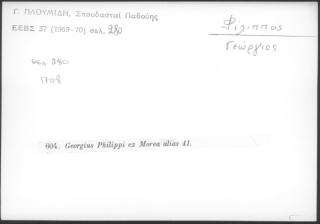 Γ. ΠΛΟΥΜΙΔΗ, Σπουδασταί Παδούης
ΕΕΒΣ 37 (1969-70) σελ. 280
Φίλιππος
Γεώργιος
σελ. 280
1708
604. Georgius Philippi ex Morea alias 41.